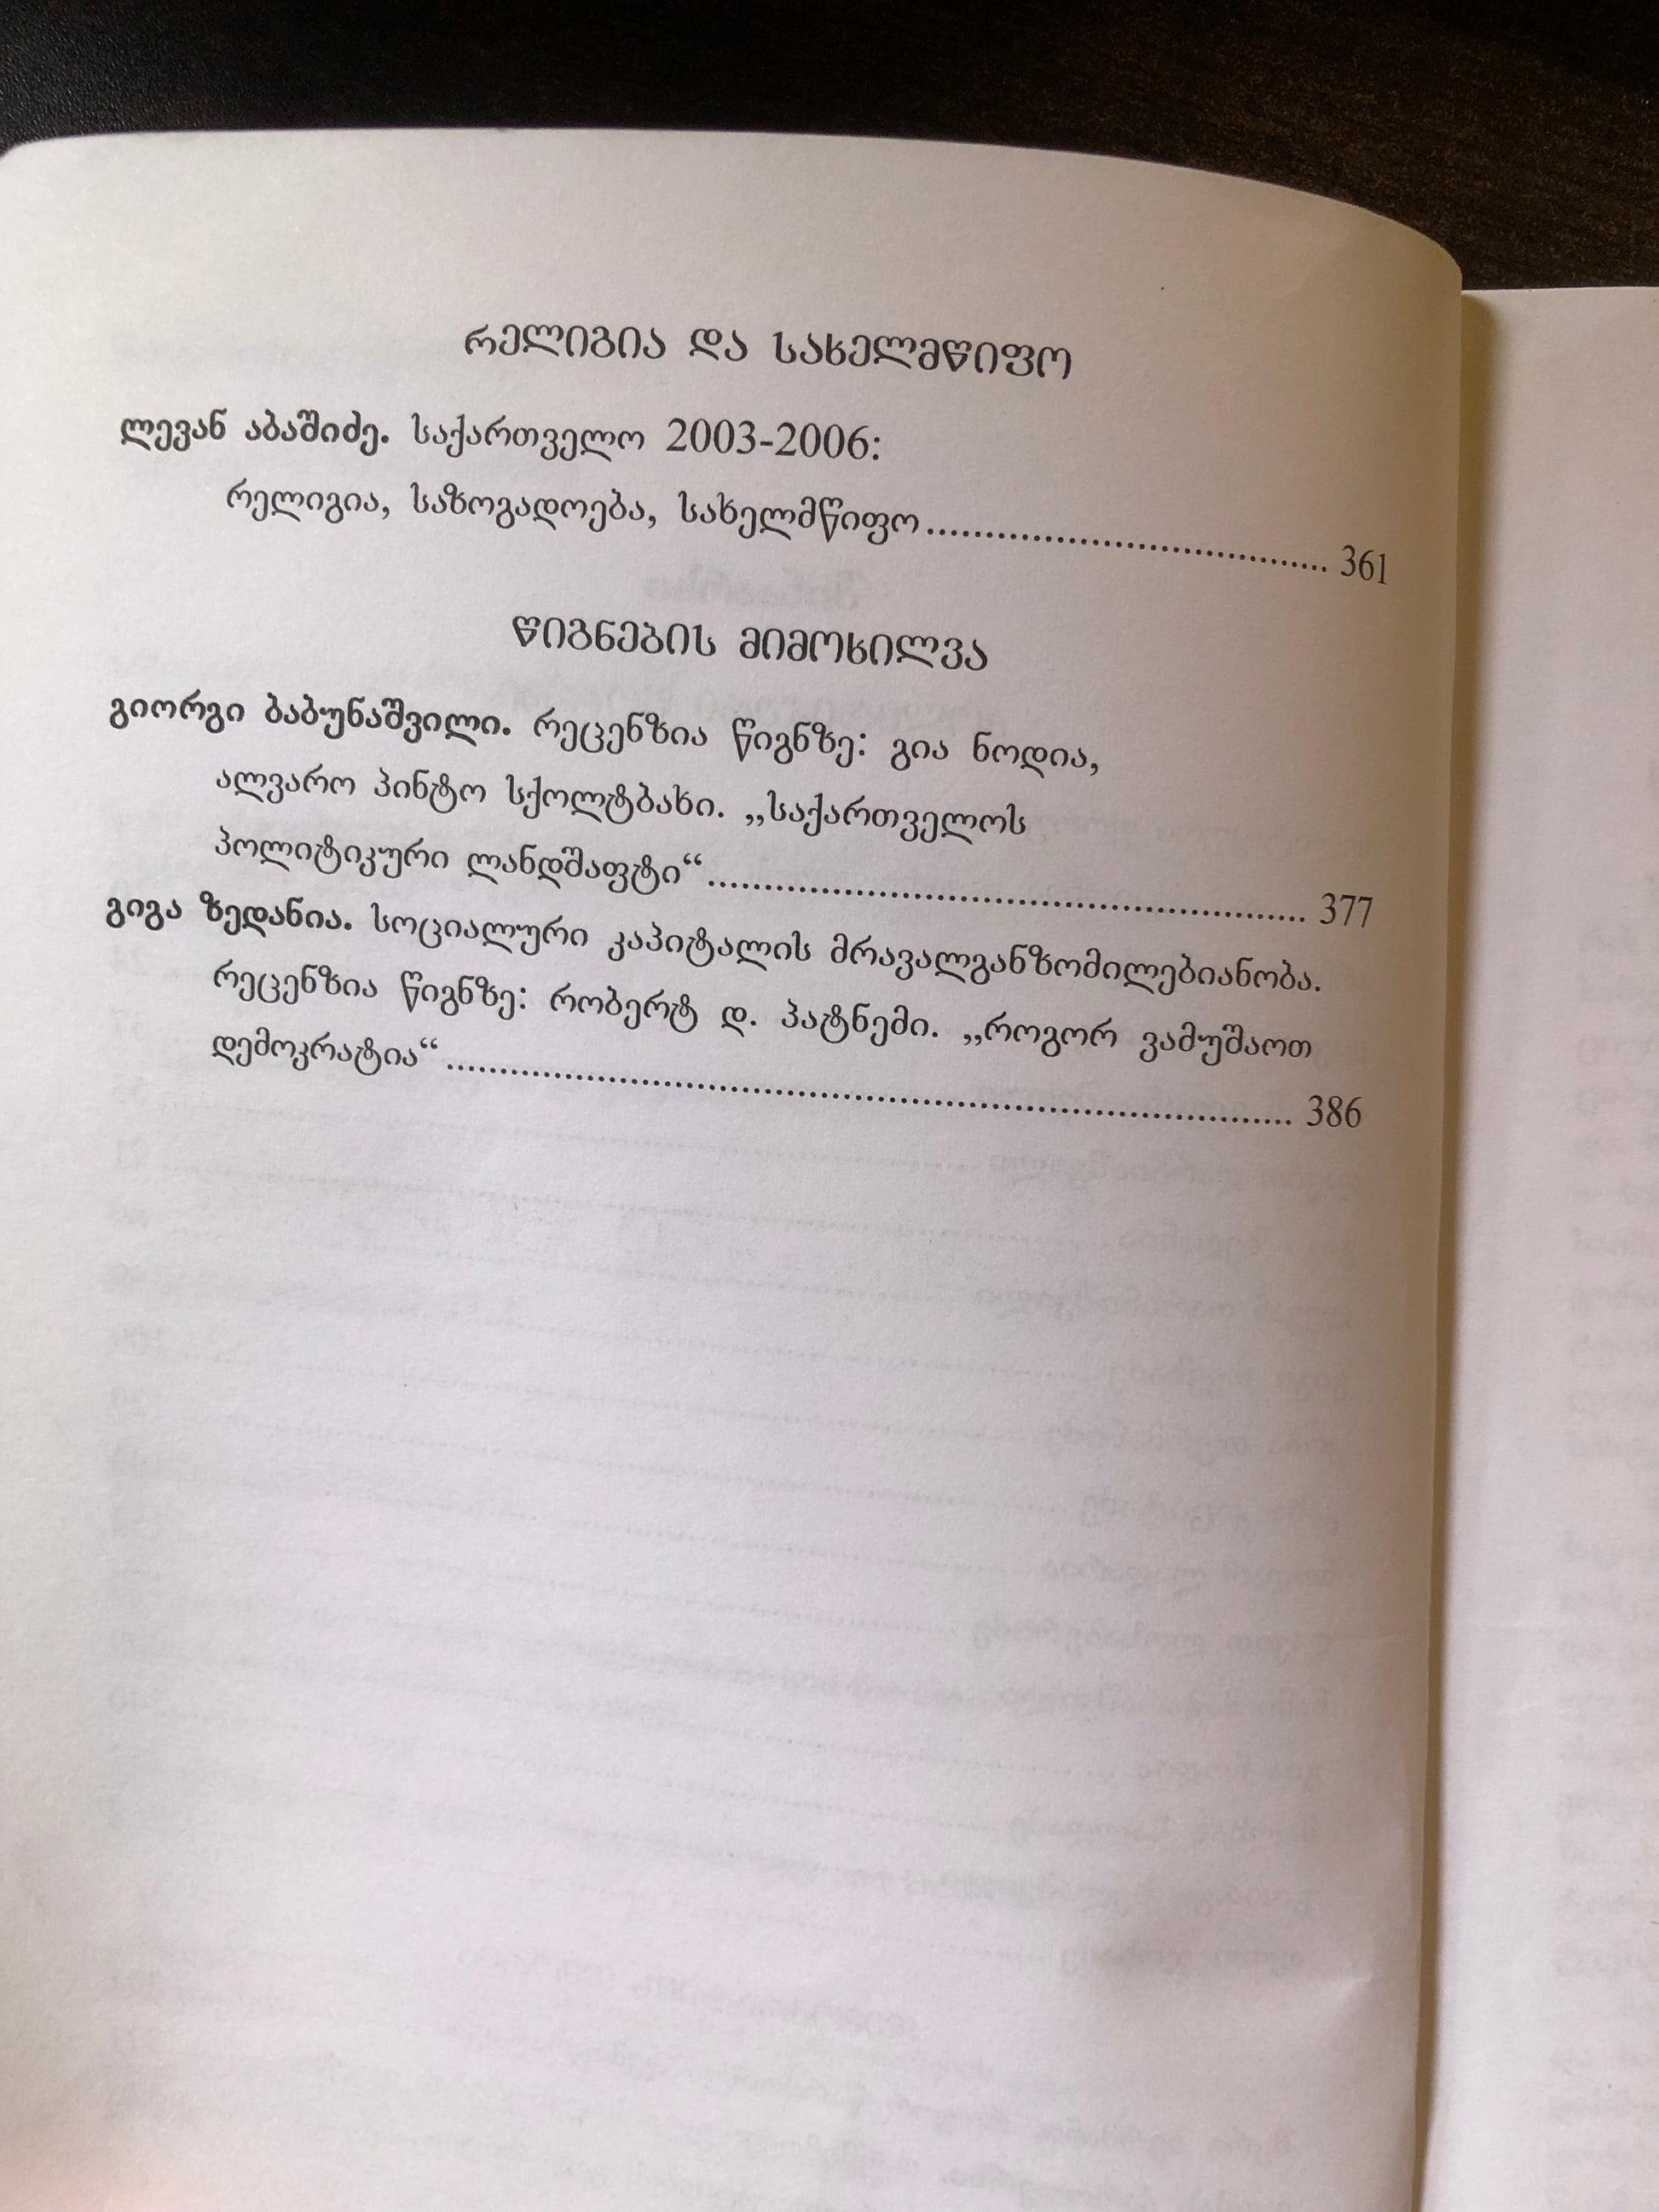 რელიგია და სახელმწიფო
ლევან აბაშიძე. საქართველო 2003-2006:
რელიგია, საზოგადოება, სახელმწიფო........................................ 361
წიგნების მიმოხილვა
გიორგი ბაბუნაშვილი. რეცენზია წიგნზე: გია ნოდია,
ალვარო პინტო სქოლტბახი. „საქართველოს
პოლიტიკური ლანდშაფტი“............................................................ 377
გიგა ზედანია. სოციალური კაპიტალის მრავალგანზომილებიანობა.
რეცენზია წიგნზე: რობერტ დ. პატნემი. „როგორ ვამუშაოთ
დემოკრატია“.................................................................................... 386